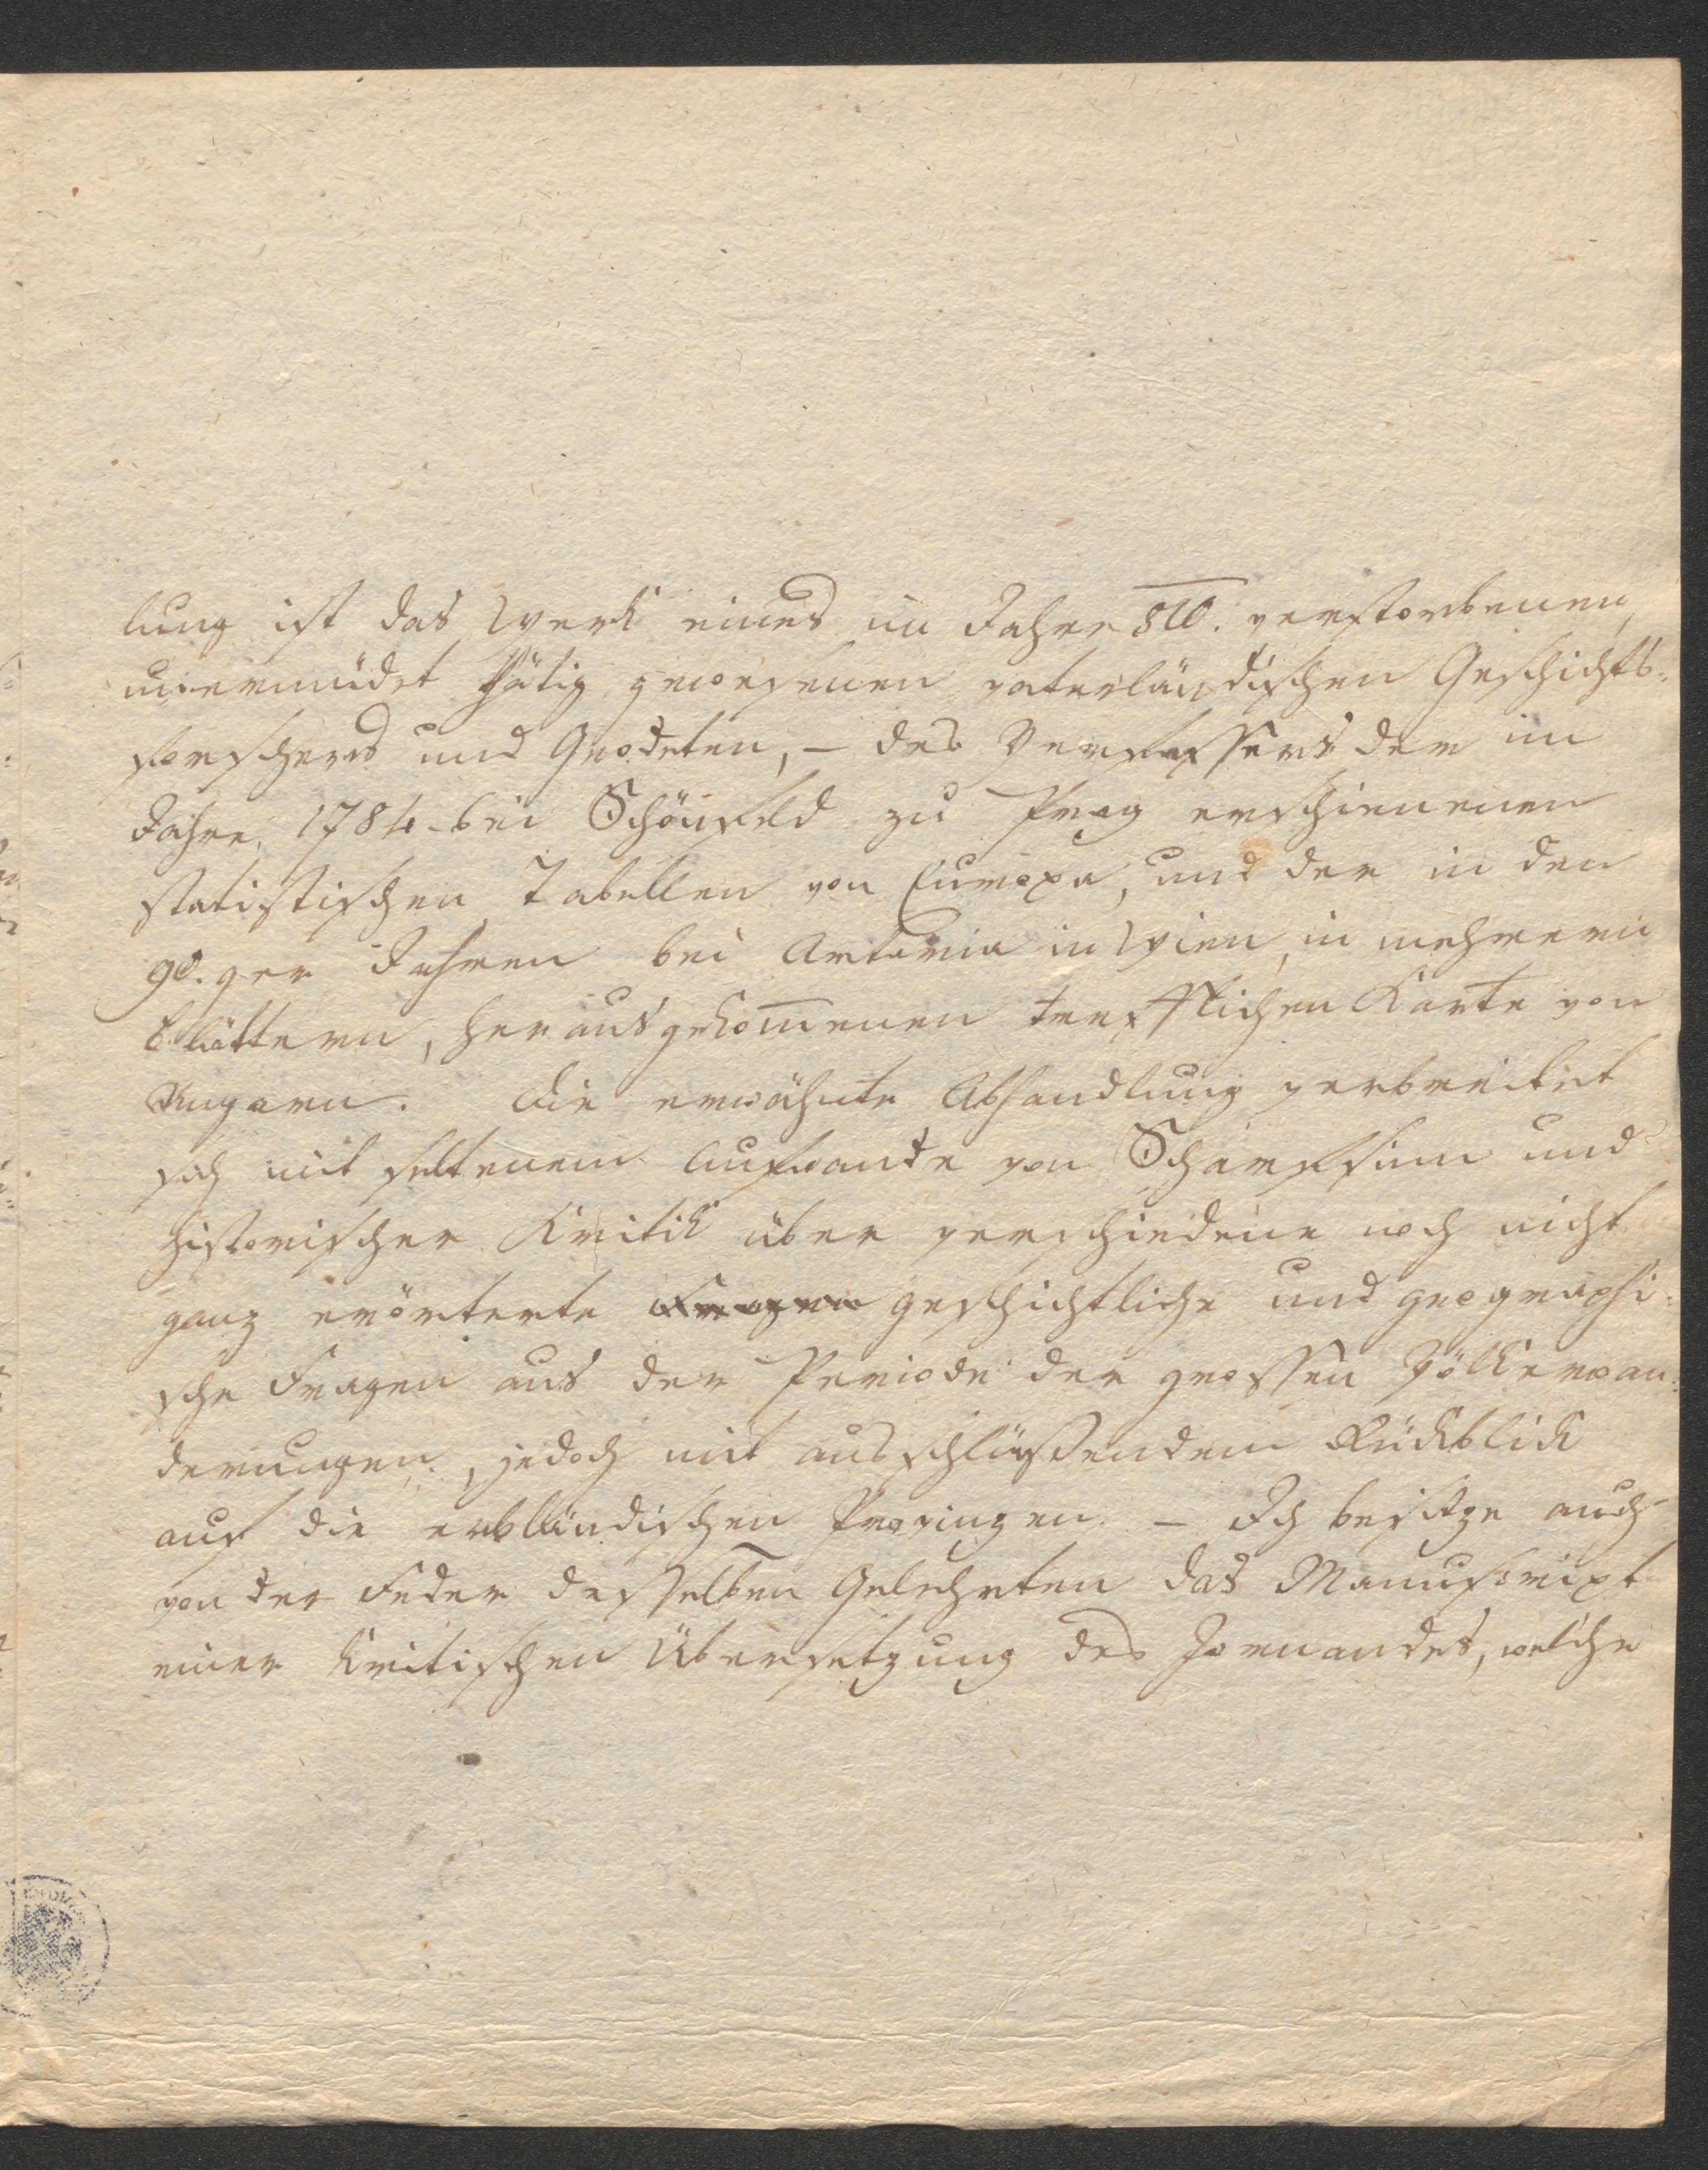 lung ist das Werk eines im Jahre 810. verstorbenen,
unermüdet thätig gewesenen vaterländischen Geschichts-
forschers und Geodeten, – des Verfassers der im
Jahre 1784 bei Schönfeld zu Prag erschienenen
statistischen Tabellen von Europa, und der in den
90.ger Jahren bei Artaria in Wien, in mehreren
Blättern, herausgekomenen trefflichen Karte von
Ungarn. Die erwähnte Abhandlung verbreitet
sich mit seltenem Aufwande von Scharfsinn und
historischer Kritik über verschiedene noch nicht
ganz erörterte Fragen geschichtliche und geographi-
sche Fragen aus der Periode der grossen Völkerwan-
derungen, jedoch mit ausschlüßendem Rückblick
auf die erbländischen Provinzen. – Ich besitze auch
von der Feder desselben Gelehrten das Manuscript
einer kritischen Übersetzung des Jornandes, welche